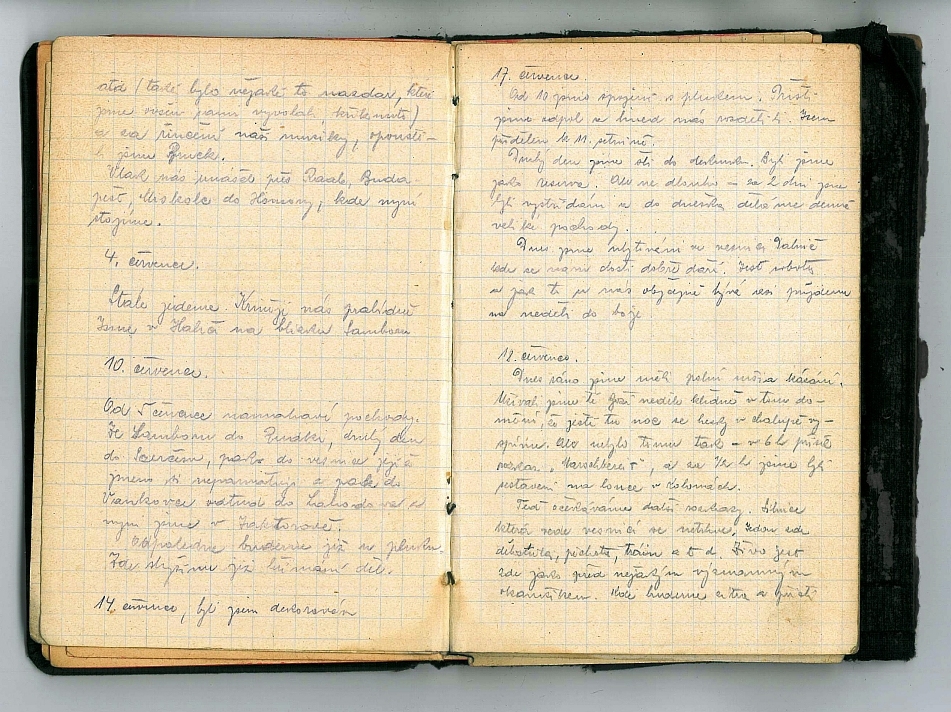 atd (také bylo nějaké to nazdar, které
jsme všem panu vyvolali
a za řinčení naší muziky, opouště-
li jsme Bruck.
Vlak nás unášel přes Raab, Buda-
pešť, Miskolc do Homony, kde nyní
stojíme.
4. července.
Stále jedeme. nás
Jsme v Haliči na blízku Samboru
10. července.
Od 5 července namáhavé pochody.
Ze Samboru do Rudki, druhý den
do pak do vesnice jejíž
jméno si nepamatuji a pak do
odtud do a
nyní jsme v
Odpoledne budeme již u pluku.
Zde slyšíme již hřímání děl.
14. července, byl jsem dekorován
17. července
Od 10 jsme spojeni s plukem. Přišli
jsme odpol. a hned nás rozdělili. Jsem
přidělen k 11. setnině.
Druhý den jsme šli do dekunku. Byli jsme
jako reserva. Ale ne dlouho – za 2 dni jsme
byli vystřídáni a do dneška děláme denně
veliké pochody.
Dnes jsme ubytováni ve vesnici
kde se nám dosti dobře daří. Jest sobota
a jak to u nás obyčejně bývá asi půjdeme
na neděli do boje
18. července.
Dnes ráno jsme měli polní mši a kázání.
Užívali jsme té boží neděle klidně v tom do-
mnění, že ještě tu noc se hezky v chalupě vy-
spíme. Ale nebylo tomu tak – v 6 h přišel
rozkaz „Marschbereit", a za ½ h jsme byli
sestaveni na louce v kolonách.
Teď očekáváme další rozkazy. Silnice
která vede vesnicí se netrhne. Jedou zde
dělostřelci, pěchota, trén a t d. Živo jest
zde jako před nějakým významným
okamžikem. Kde budeme zítra a příští